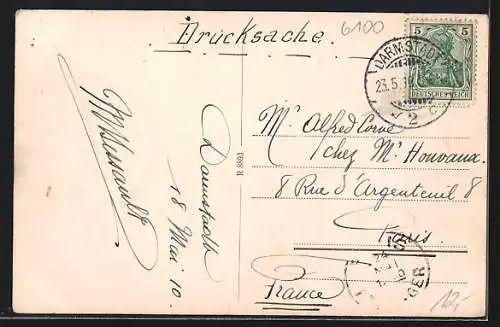 Drucksache.
6100
5 5
DEUTSCHES REICH
DARMSTADT
23.5.
2 c
Mr Alfred
chez Mr Houvaux.
8 Rue d'Argenteuil 8
Paris.
France
R 8893
Darmstadt
18 Mai 10.
24
12,-